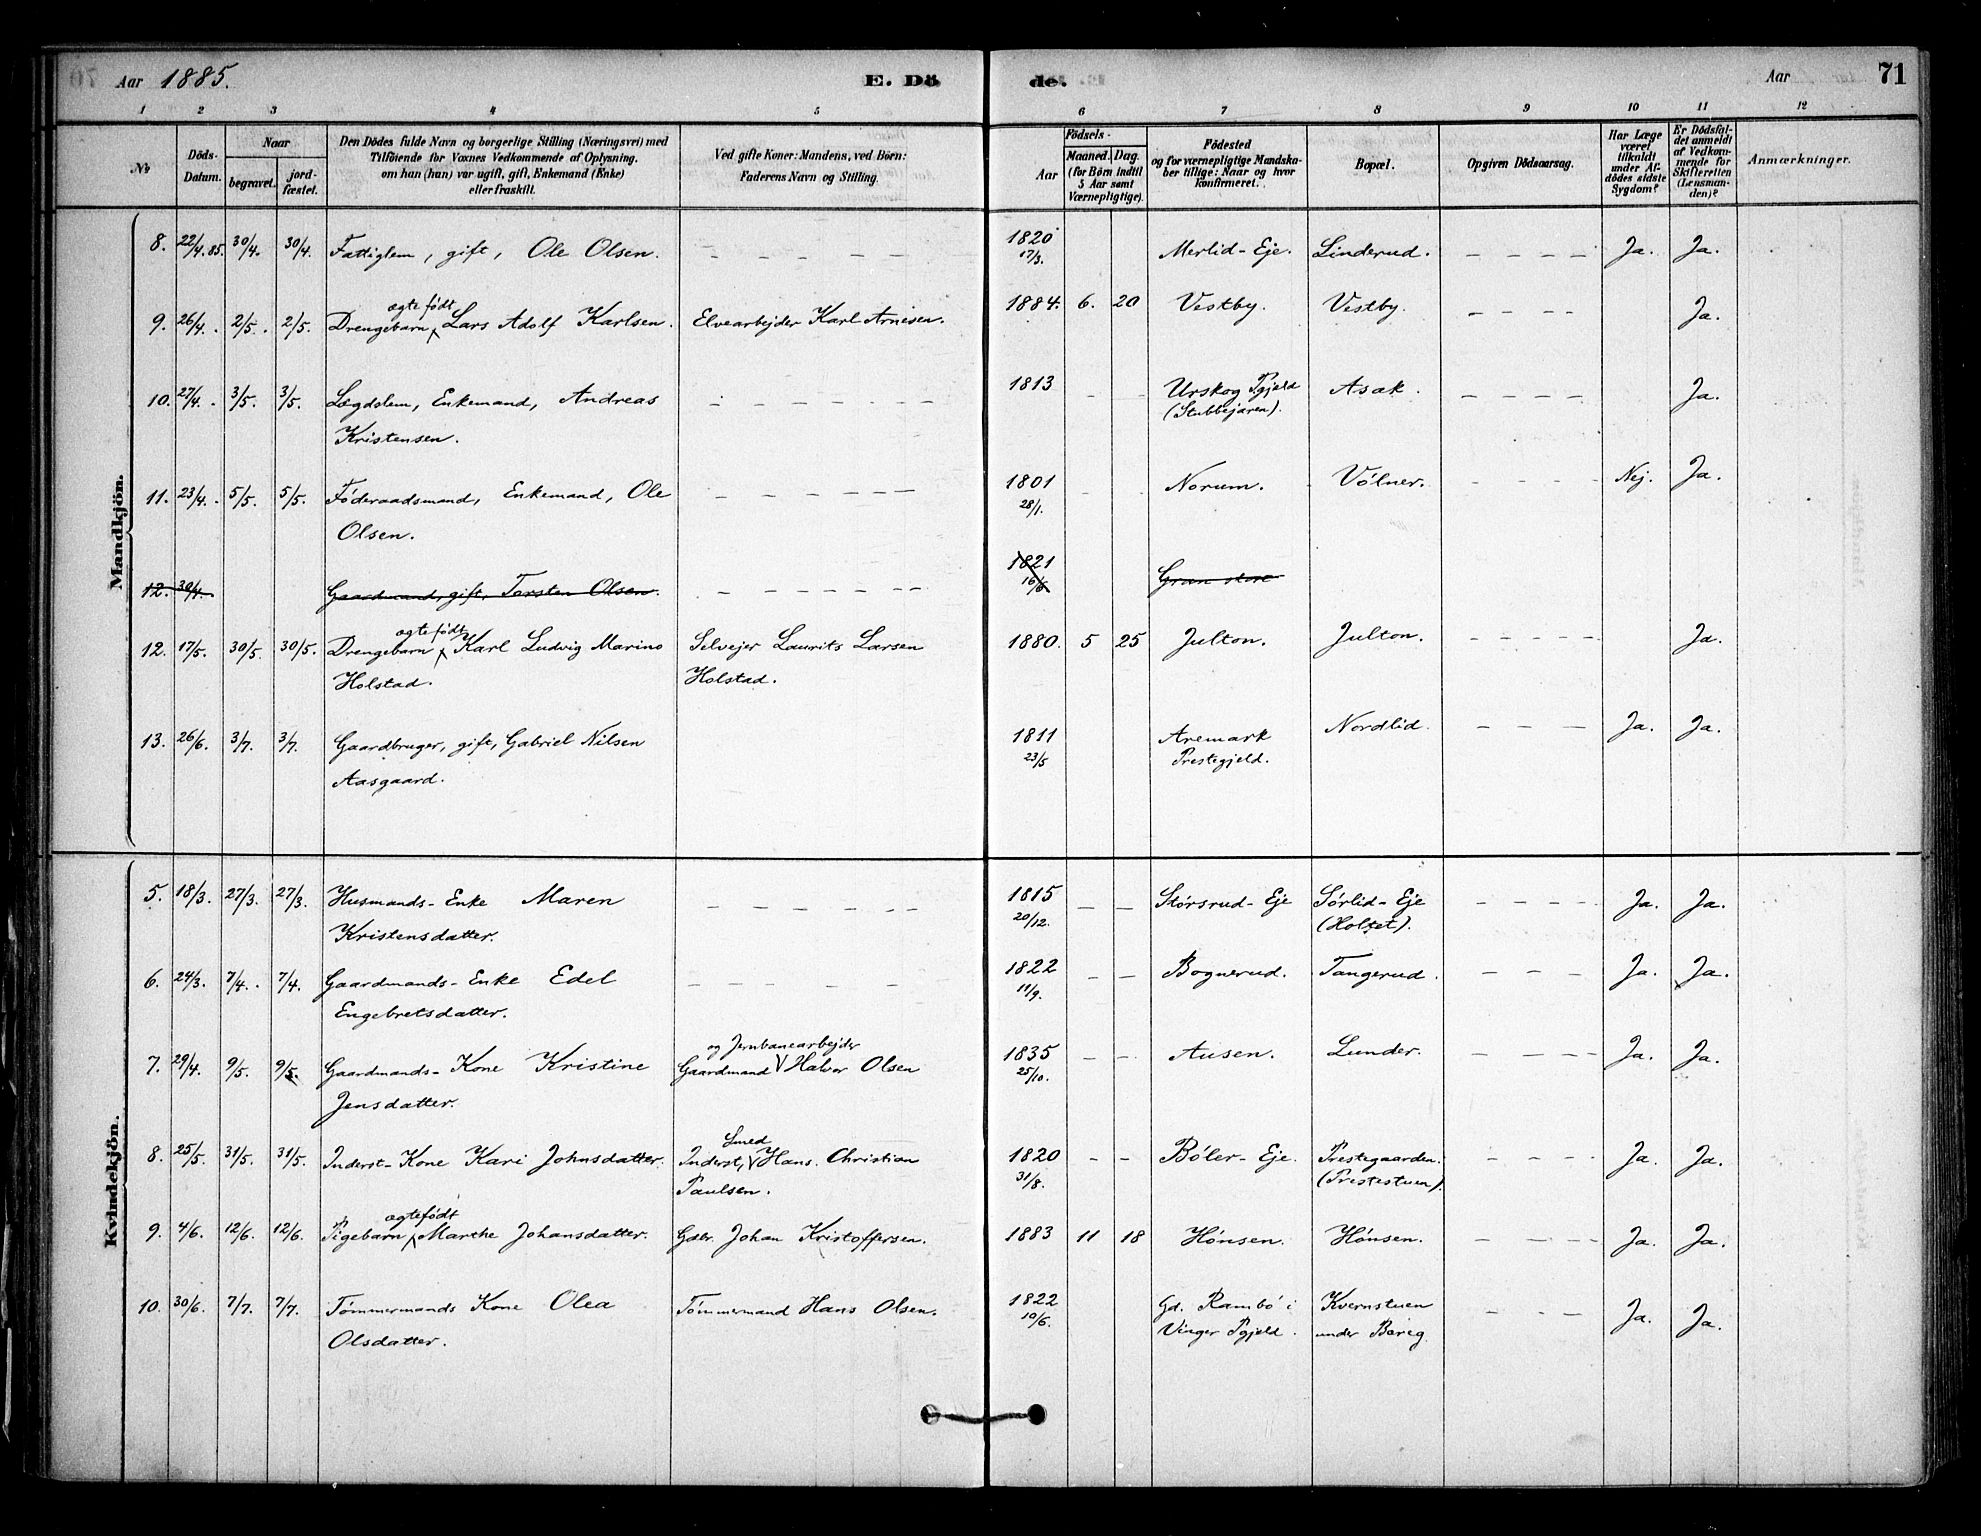 Aar 1885. E. Dö de. Aar 71
1 2 3 4 5 6 7 8 9 10 11 12
No
Döds-Datum.
Naar
begravet.
jordfæstet.
Den Dödes fulde Navn og borgerlige Stilling (Næringsvei) med
Tilföiende for Voxnes Vedkommende af Oplysning,
om han (hun) var ugift, gift, Enkemand (Enke)
eller fraskilt.
Ved gifte Koner: Mandens, ved Börn:
Faderens Navn og Stilling.
Födsels-
Aar
Maaned. Dag.
(for Börn indtil
5 Aar samt
Værnepligtige).
Födested
og for værnepligtige Mandska-
ber tillige: Naar og hvor
konfirmeret.
Bopæl.
Opgiven Dödsaarsag.
Har Læge
været
tilkaldt
under Af-
dödes sidste
Sygdom?
Er Dödsfal-
det anmeldt
af Vedkom-
mende for
Skifteretten
(Lensman-
den)?
Anmærkninger.
Mandkjön.
8. 22/4.85. 30/4. 30/4. Fattiglem, gift, Ole Olsen. 1820 17/3. Merlid-Eje. Linderud. Ja. Ja.
ægte født
9. 26/4. 2/5. 2/5. Drengebarn Lars Adolf Karlsen. Elvearbejder Karl Arnesen. 1884. 6. 20 Vestby. Vestby. Ja.
10. 27/4. 3/5. 3/5. Lægdslem, Enkemand, Andreas 1813 Urskog Pgjeld Asak. Ja.
Kristensen. (Stubbejaren).
11. 23/4. 5/5. 5/5. Føderaadsmand, Enkemand, Ole 1801 28/1. Norum. Vølner. Nej. Ja.
Olsen.
12. 30/4. Gaardmand, gift, Torsten Olsen. 1821 16/6 Gran store
ægtefødt
12. 17/5. 30/5. 30/5. Drengebarn Karl Ludvig Marino Selvejer Laurits Larsen 1880. 5 25 Julton. Julton. Ja.
Holstad. Holstad.
13. 26/6. 3/7. 3/7. Gaardbruger, gift, Gabriel Nilsen 1811 23/5 Aremark Nordlid. Ja. Ja.
Aasgaard. Prestegjeld.
Kvindekjön.
5. 18/3. 27/3. 27/3. Husmands-Enke Maren 1815 20/12. Størsrud-Eje Sørlid-Eje Ja. Ja.
Kristensdatter. (Holtet).
6. 24/3. 7/4. 7/4. Gaardmands-Enke Edel 1822 11/9. Bognerud. Tangerud. Ja. Ja.
Engebretsdatter.
og Jernbanearbejder
7. 29/4. 9/5. 9/5. Gaardmands-Kone Kristine Gaardmand Halvor Olsen 1835 25/10. Ausen. Lunder. Ja. Ja.
Jensdatter.
Smed
8. 25/5. 31/5. 31/5. Inderst-Kone Kari Johnsdatter. Inderst, Hans Christian 1820 31/8. Bøler-Eje. Prestegaarden. Ja. Ja.
Paulsen. (Prestestuen).
ægtefødt
9. 4/6. 12/6. 12/6. Pigebarn Marthe Johansdatter. Gdbr. Johan Kristoffersen. 1883 11 18 Hønsen. Hønsen. Ja. Ja.
10. 30/6. 7/7. 7/7. Tømmermands Kone Olea Tømmermand Hans Olsen. 1822 10/6. Gd. Rambø i Kvernstuen Ja. Ja.
Olsdatter. Vinger Pgjeld. under Berég.